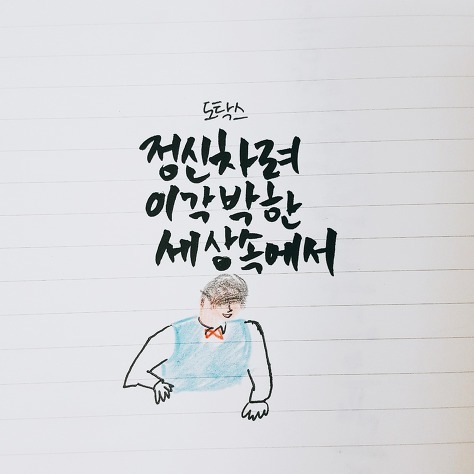 도탁스
정신차려
이각박한
세상속에서